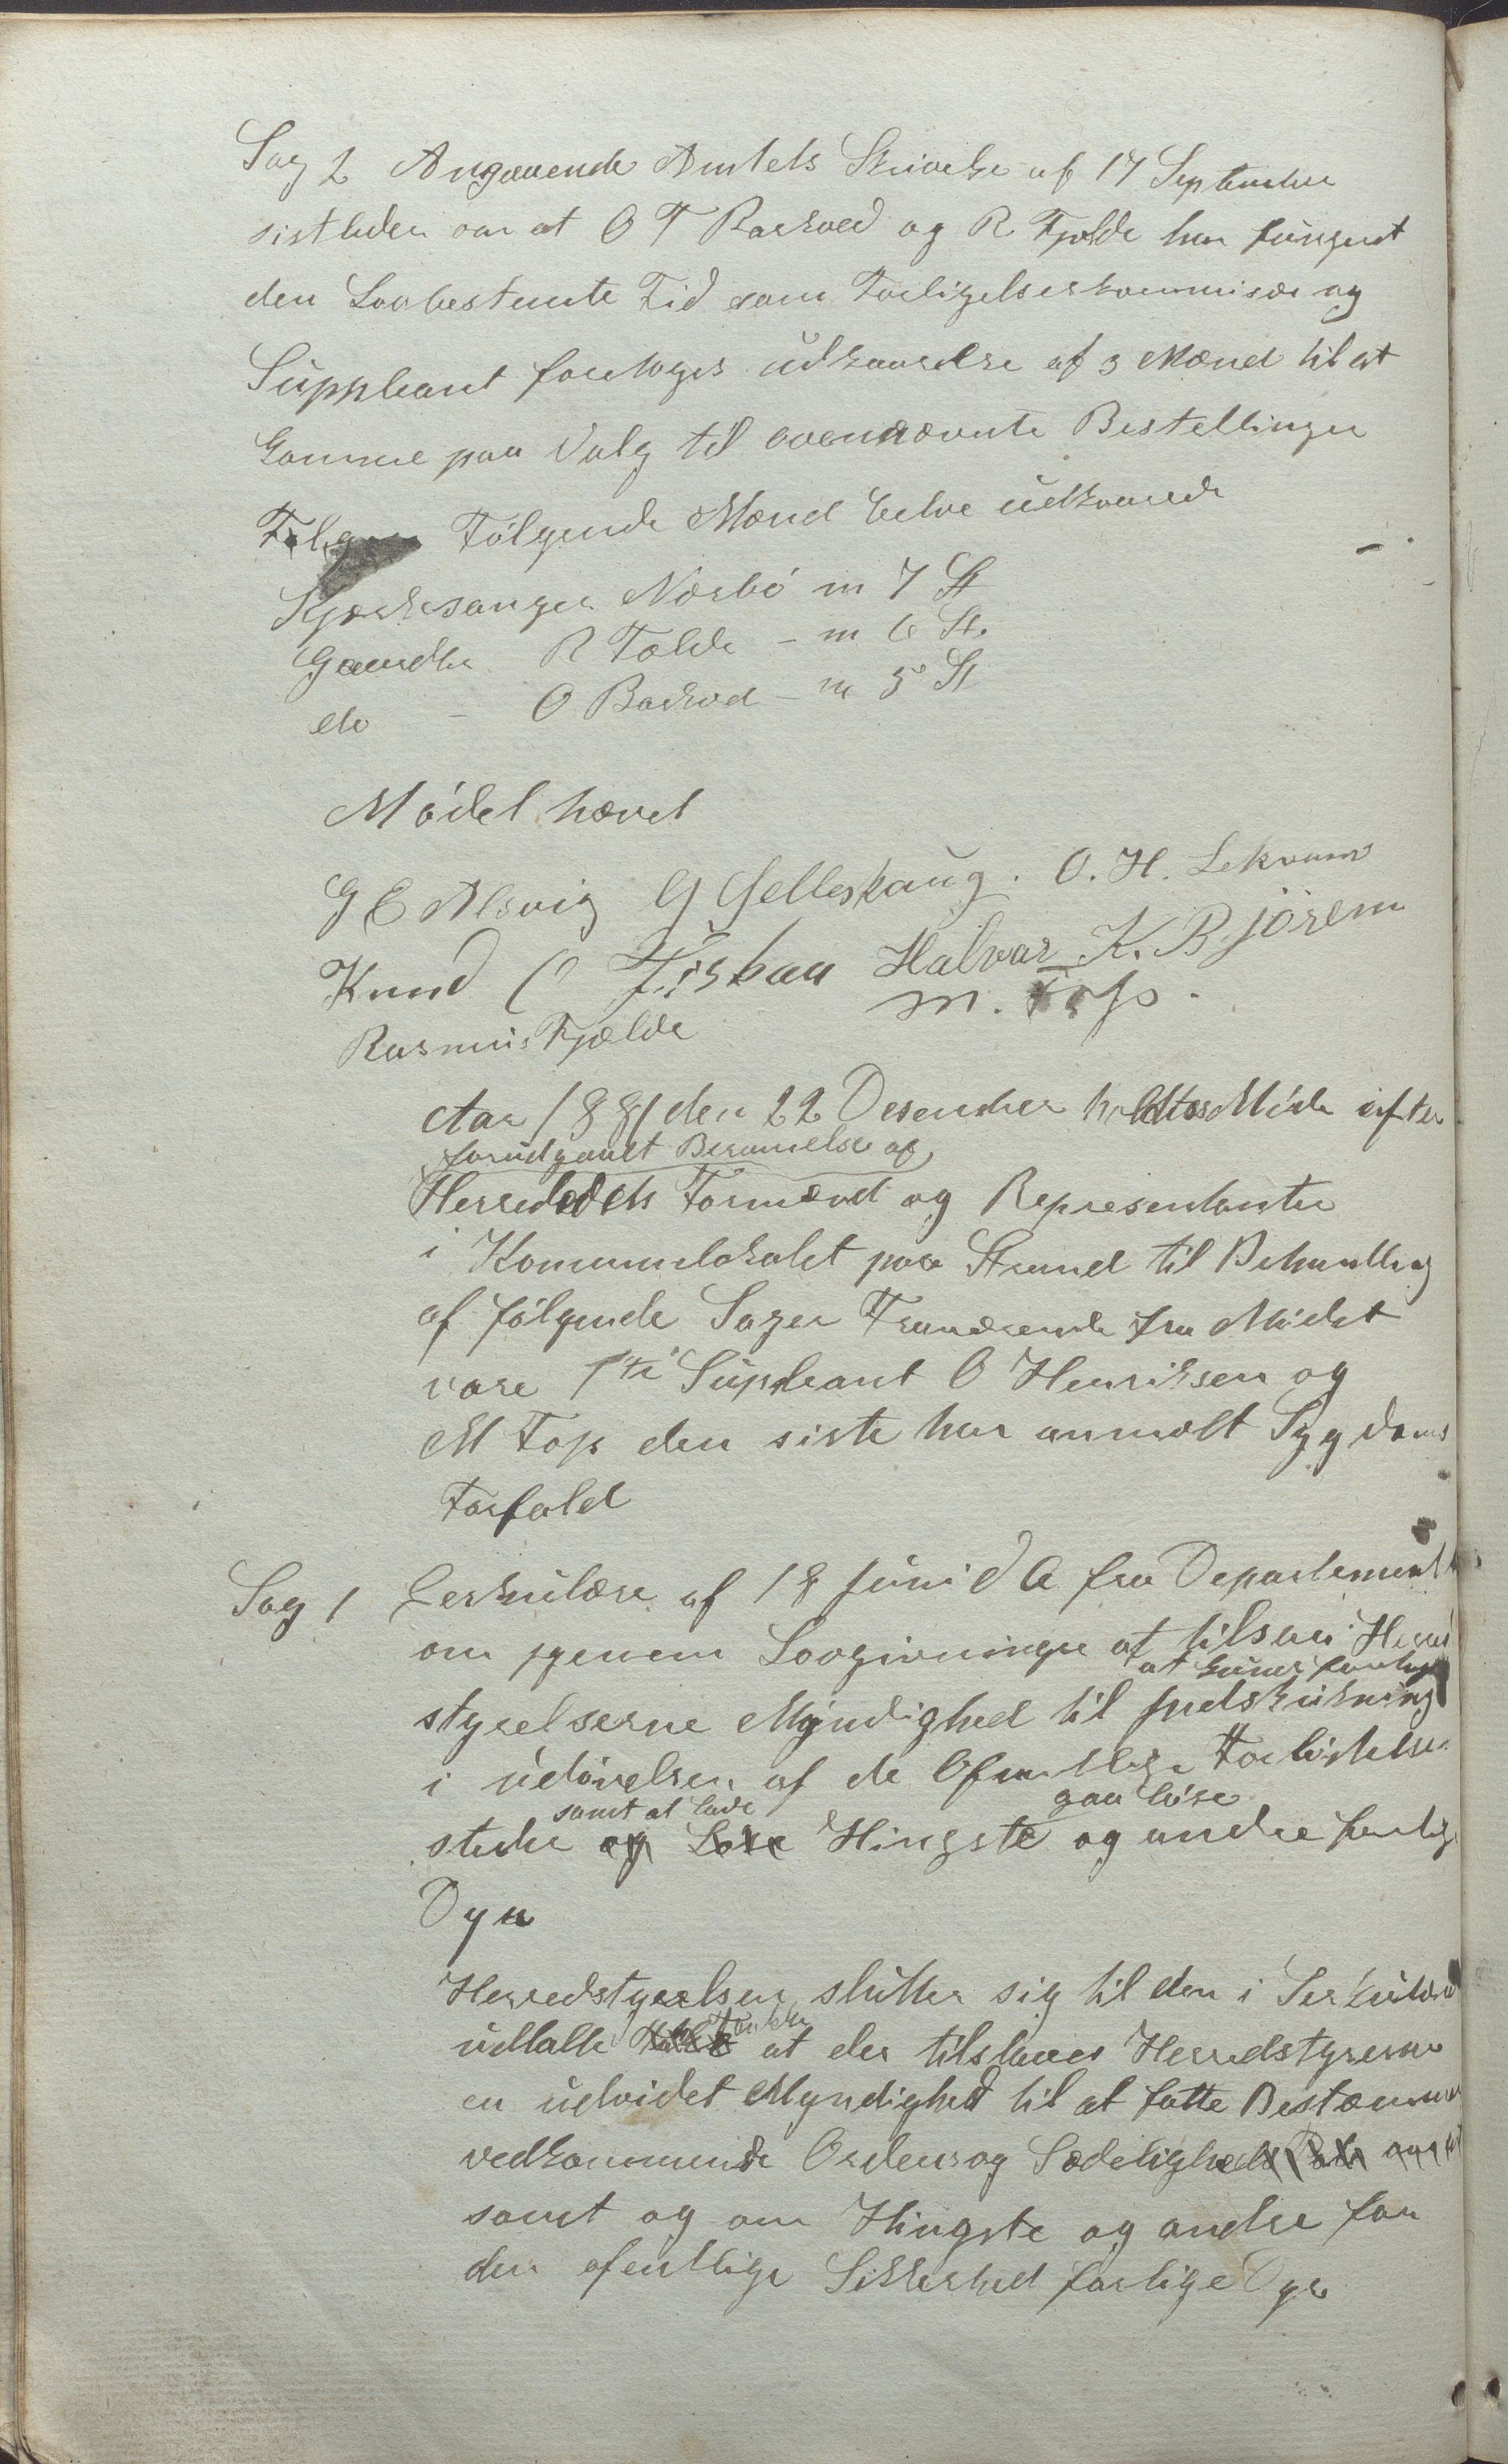 Sag 2 Angaaende Amtets Skrivelse af 17 September
sistleden om at O T Barkved og R Fjelde har fungeret
den Lovbestemte Tid som Forligelseskommisær og
Suppleant foretoges udkaarelse af 3 Mænd til at
komme paa Valg til ovennævnte Bestellinger
Følgende Mænd belve udkaarede
Kjerkesanger Nærbö m 7 St
Gaardbr R Fælde - m 6 St.
do - O Barkved - m 5 St
Mödet hævet
G E Alsvig G Gelleskaug. O. H. Lekvam
Knud O Fiskaa Halvar K. Björem
Rasmus Fjælde m. Fops.
Aar 1881 den 22 Desember holdtes Möde efter
forudgaaet Berammelse af
Herredets Formænd og Representanter
i Kommunelokalet paa Strand til Behandling
af följende Sager Fraværende fra Mödet
vare 1ste Supleant O Henriksen og
M Fops den siste har anmelt Sygdoms
Forfald
Sag 1 Serkulære af 18 Juni d A fra Departement
om gjenem Lovgivningen at tilstaa Herred
at kunne foretage
styrelserne Myndighed til Indskrænkning
i udövelsen af de Ofentlige Forlistelses
samt at lade gaa löse
steder og Löse Hingste og andre farlige
Dyr
Herredstyrelsen slutter sig til den i Serkulæret
udtalte Tanke at der tilstaaes Herredstyrerne
en udvidet Myndighed til at fatte Bestemmelser
vedkommende Orden og Sædelighed
samt og om Hingste og andre for
den ofentlige Sikkerhed farlige Dyr